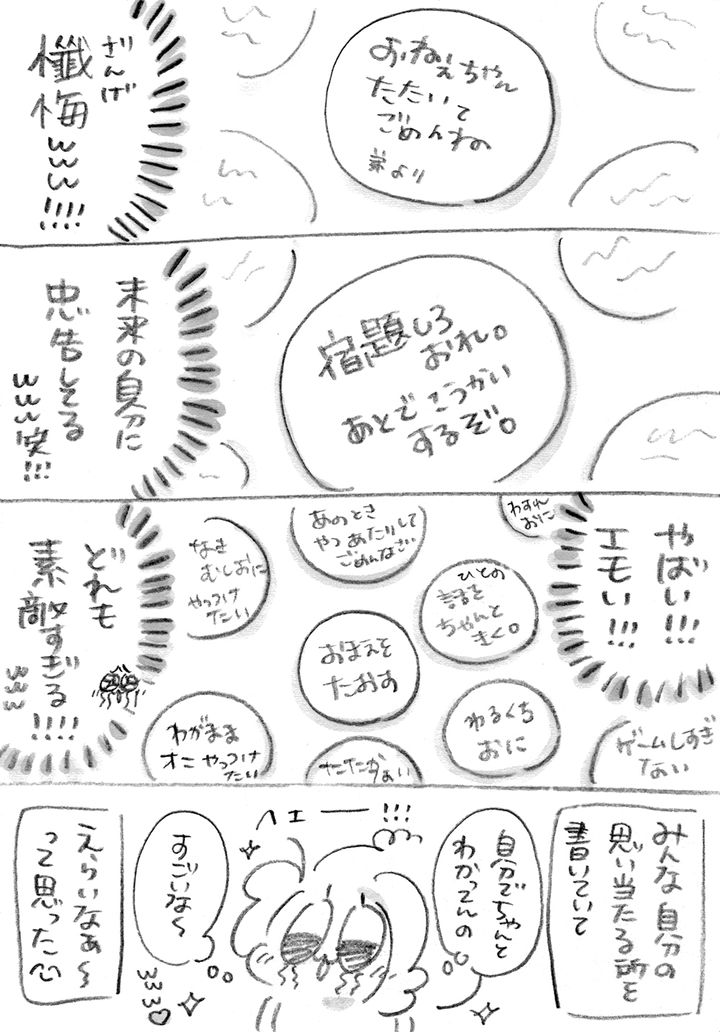 おねぇちゃん
たたいて
ごめんね
弟より
ざんげ
懺悔www!!!!
宿題しろ
おれ。
あとでこうかい
するぞ。
未来の自分に
忠告してる
www笑!!!
やばい!!!
エモい!!!
わすれ
おに
ひとの
話を
ちゃんと
きく。
あのとき
やつあたりして
ごめんなさい
なき
むしおに
やっつけ
たい
おまえを
たおす
わるくち
おに
ゲームしすぎ
ない
たたかぁい
わがまま
オニやっつけ
たい
どれも
素敵すぎる!!!!
www
みんな自分の
思い当たる所を
書いていて
ヘェー!!!
自分でちゃんと
わかってんの
すごいな〜
www♡
えらいなぁ〜
って思った心